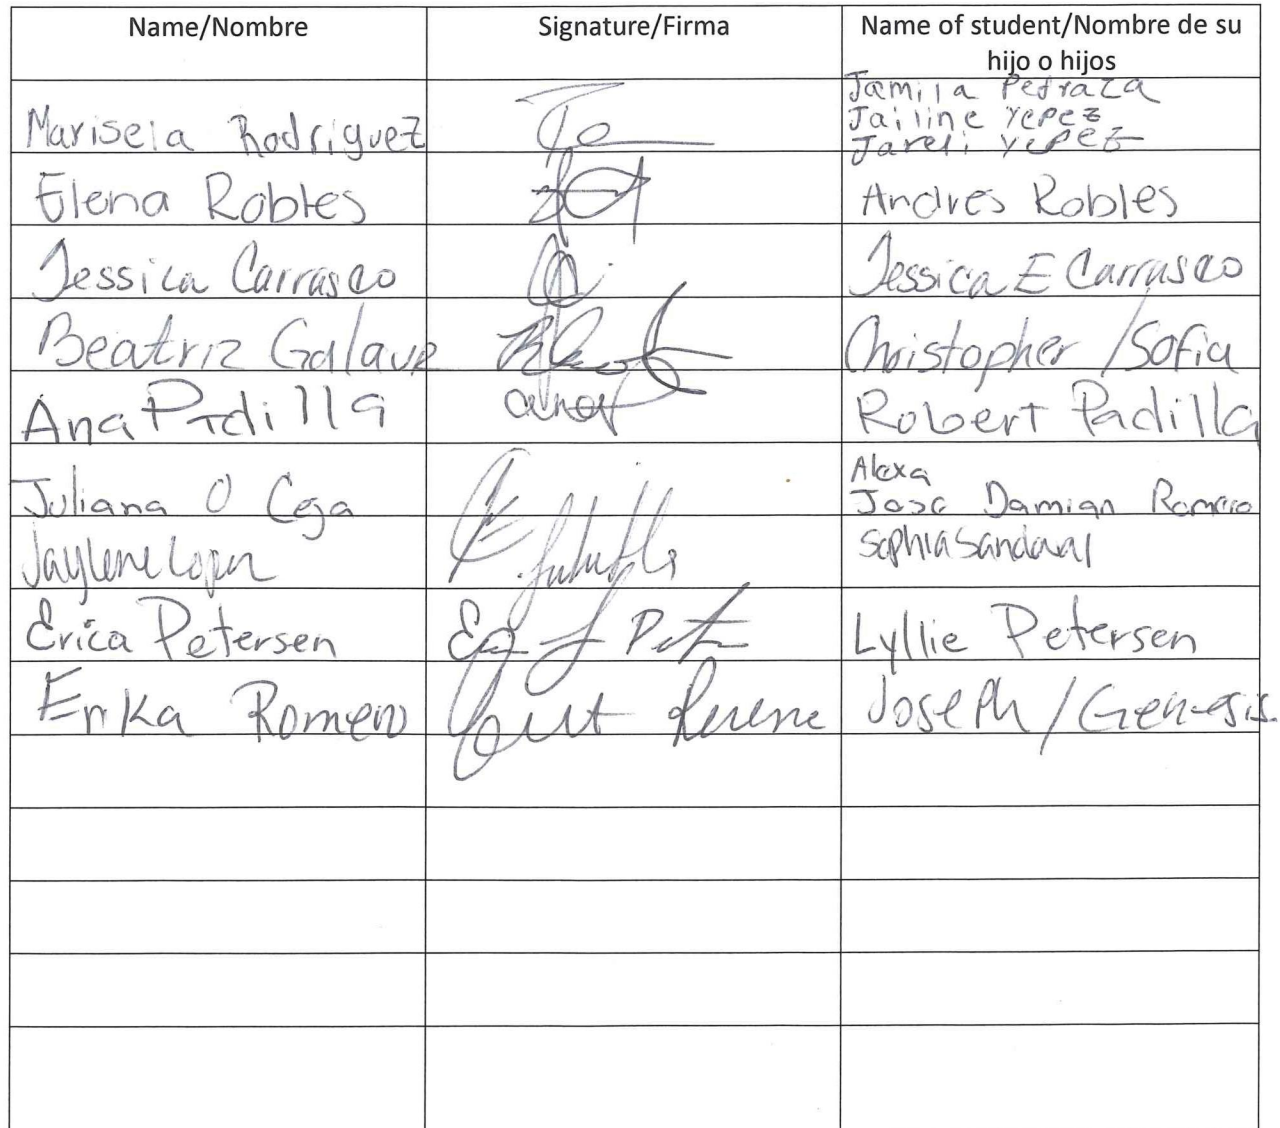 Name/Nombre Signature/Firma Name of student/Nombre de su
hijo o hijos
Jamila Pedraza
Jailine Yepez
Mariseia Rodriguez Jareli Yepez
Elena Robles Andres Robles
Jessica Carrasco Jessica E Carrasco
Beatriz Galavz Christopher / Sofia
Ana Padilla Robert Padilla
Alexa
Juliana O Ceja Jose Damian Romero
Jaylene Lopez Sophia Sandoval
Erica Petersen Lyllie Petersen
Erika Romero Joseph / Genesis